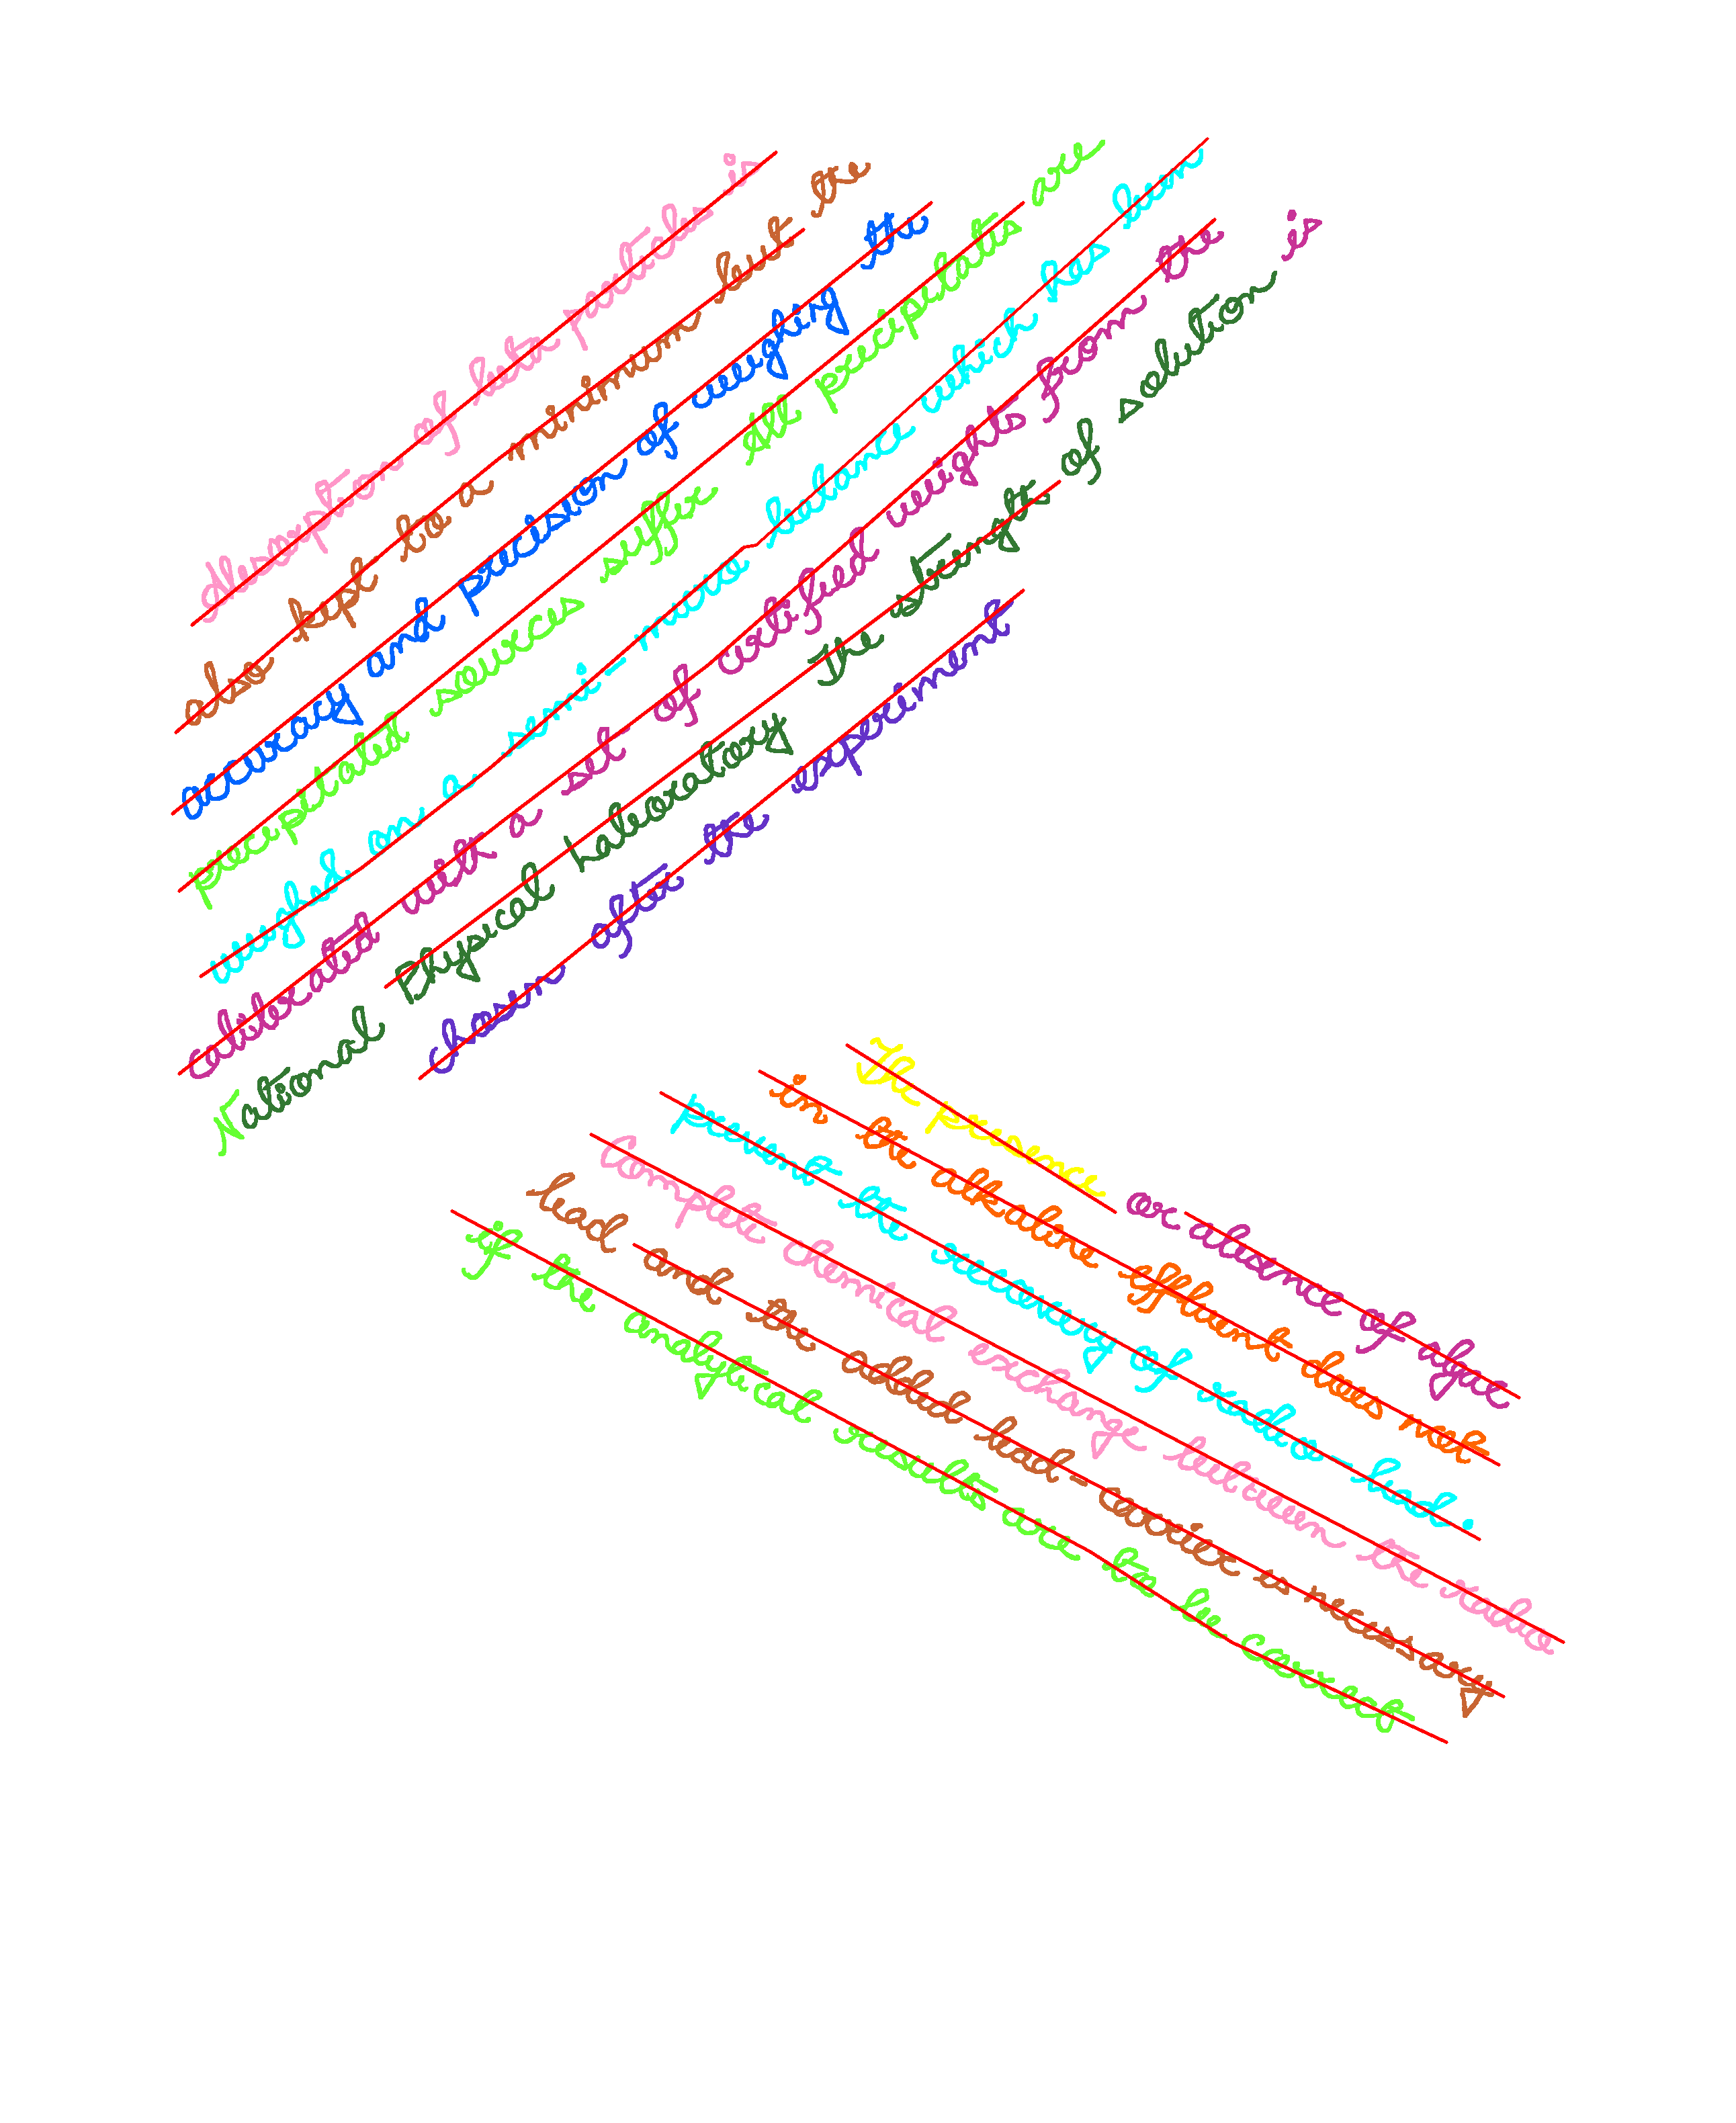 Absorption of beta particles is
also kept to a minimum but the
accuracy and precision of weighing the
precipitated sources suffer All precipitates are
weighed on a semi-micro balance which has been
calibrated with a set of certified weights from the
National Physical Laboratory The strength of solution is
chosen after the experiment
The presence or absence of dyes
in the alkaline effluent does not
prevent the recovery of radio-lead.
Complete chemical exchange between the radio
lead and the added lead-carrier is necessary
if the analytical results are to be correct